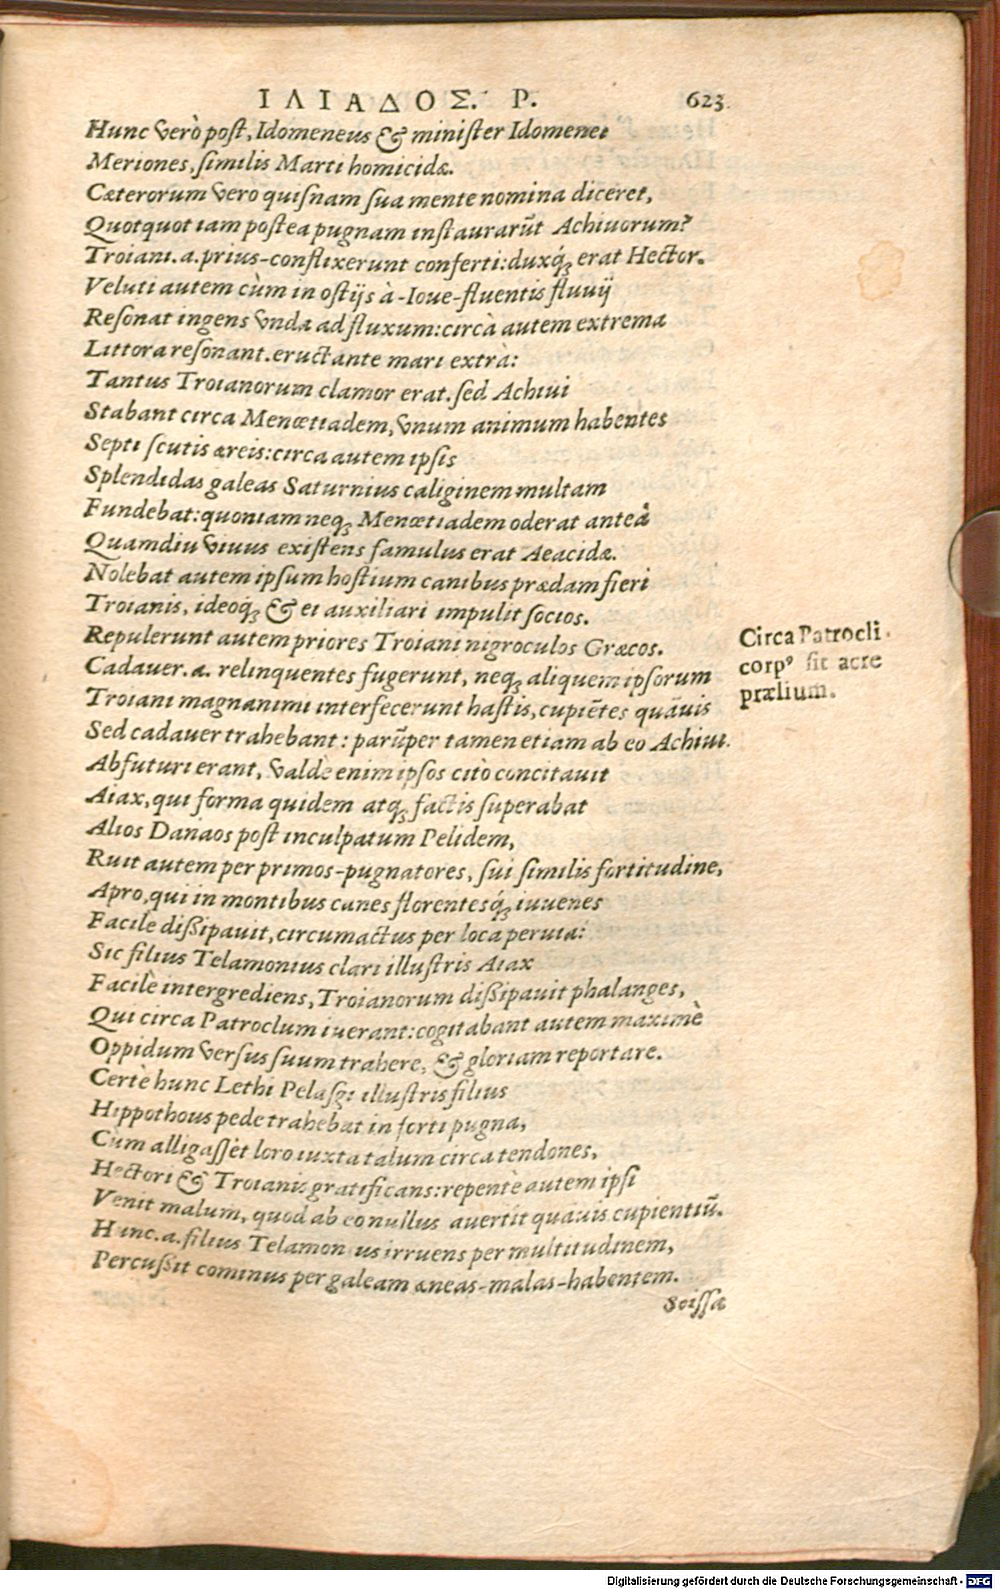 ΙΛΙΑΔΟΣ. Ρ. 623.
Hunc verò post, Idomeneus & minister Idomenei
Meriones, similis Marti homicidæ.
Cæterorum vero quisnam sua mente nomina diceret,
Quotquot iam postea pugnam instaurarūt Achiuorum?
Troiani.a.prius-conflixerunt conferti:duxq́ꝫ erat Hector.
Veluti autem cùm in ostijs à-Ioue-fluentis fluuij
Resonat ingens vnda ad fluxum:circà autem extrema
Littora resonant.eructante mari extrà:
Tantus Troianorum clamor erat.sed Achiui
Stabant circa Menœtiadem, vnum animum habentes
Septi scutis æreis:circa autem ipsis
Splendidas galeas Saturnius caliginem multam
Fundebat:quoniam neqꝫ Menœtiadem oderat anteà
Quamdiu viuus existens famulus erat Aeacidæ.
Nolebat autem ipsum hostium canibus prædam fieri
Troianis, ideoq́ꝫ & ei auxiliari impulit socios.
Repulerunt autem priores Troiani nigroculos Græcos.
Cadauer.a. relinquentes fugerunt, neqꝫ aliquem ipsorum
Troiani magnanimi interfecerunt hastis, cupiētes quāuis
Sed cadauer trahebant: parūper tamen etiam ab eo Achiui
Abfuturi erant, valdè enim ipsos citò concitauit
Aiax, qui forma quidem atqꝫ factis superabat
Alios Danaos post inculpatum Pelidem,
Ruit autem per primos-pugnatores, sui similis fortitudine,
Apro, qui in montibus canes florentesq́ꝫ iuuenes
Facilè dißipauit, circumactus per loca peruia:
Sic filius Telamonius clari illustris Aiax
Facilè intergrediens, Troianorum dißipauit phalanges,
Qui circa Patroclum iuerant:cogitabant autem maximè
Oppidum versus suum trahere, & gloriam reportare.
Certè hunc Lethi Pelasgi illustris filius
Hippothous pede trahebat in forti pugna,
Cùm alligasset loro iuxta talum circa tendones,
Hectori & Troianis gratificans:repentè autem ipsi
Venit malum, quod ab eo nullus auertit quāuis cupientiū.
Hunc.a.filius Telamonius irruens per multitudinem,
Percußit cominus per galeam æneas-malas-habentem.
Scissa
Circa Patrocli
corpꝰ fit acre
prælium.
Digitalisierung gefördert durch die Deutsche Forschungsgemeinschaft - DFG